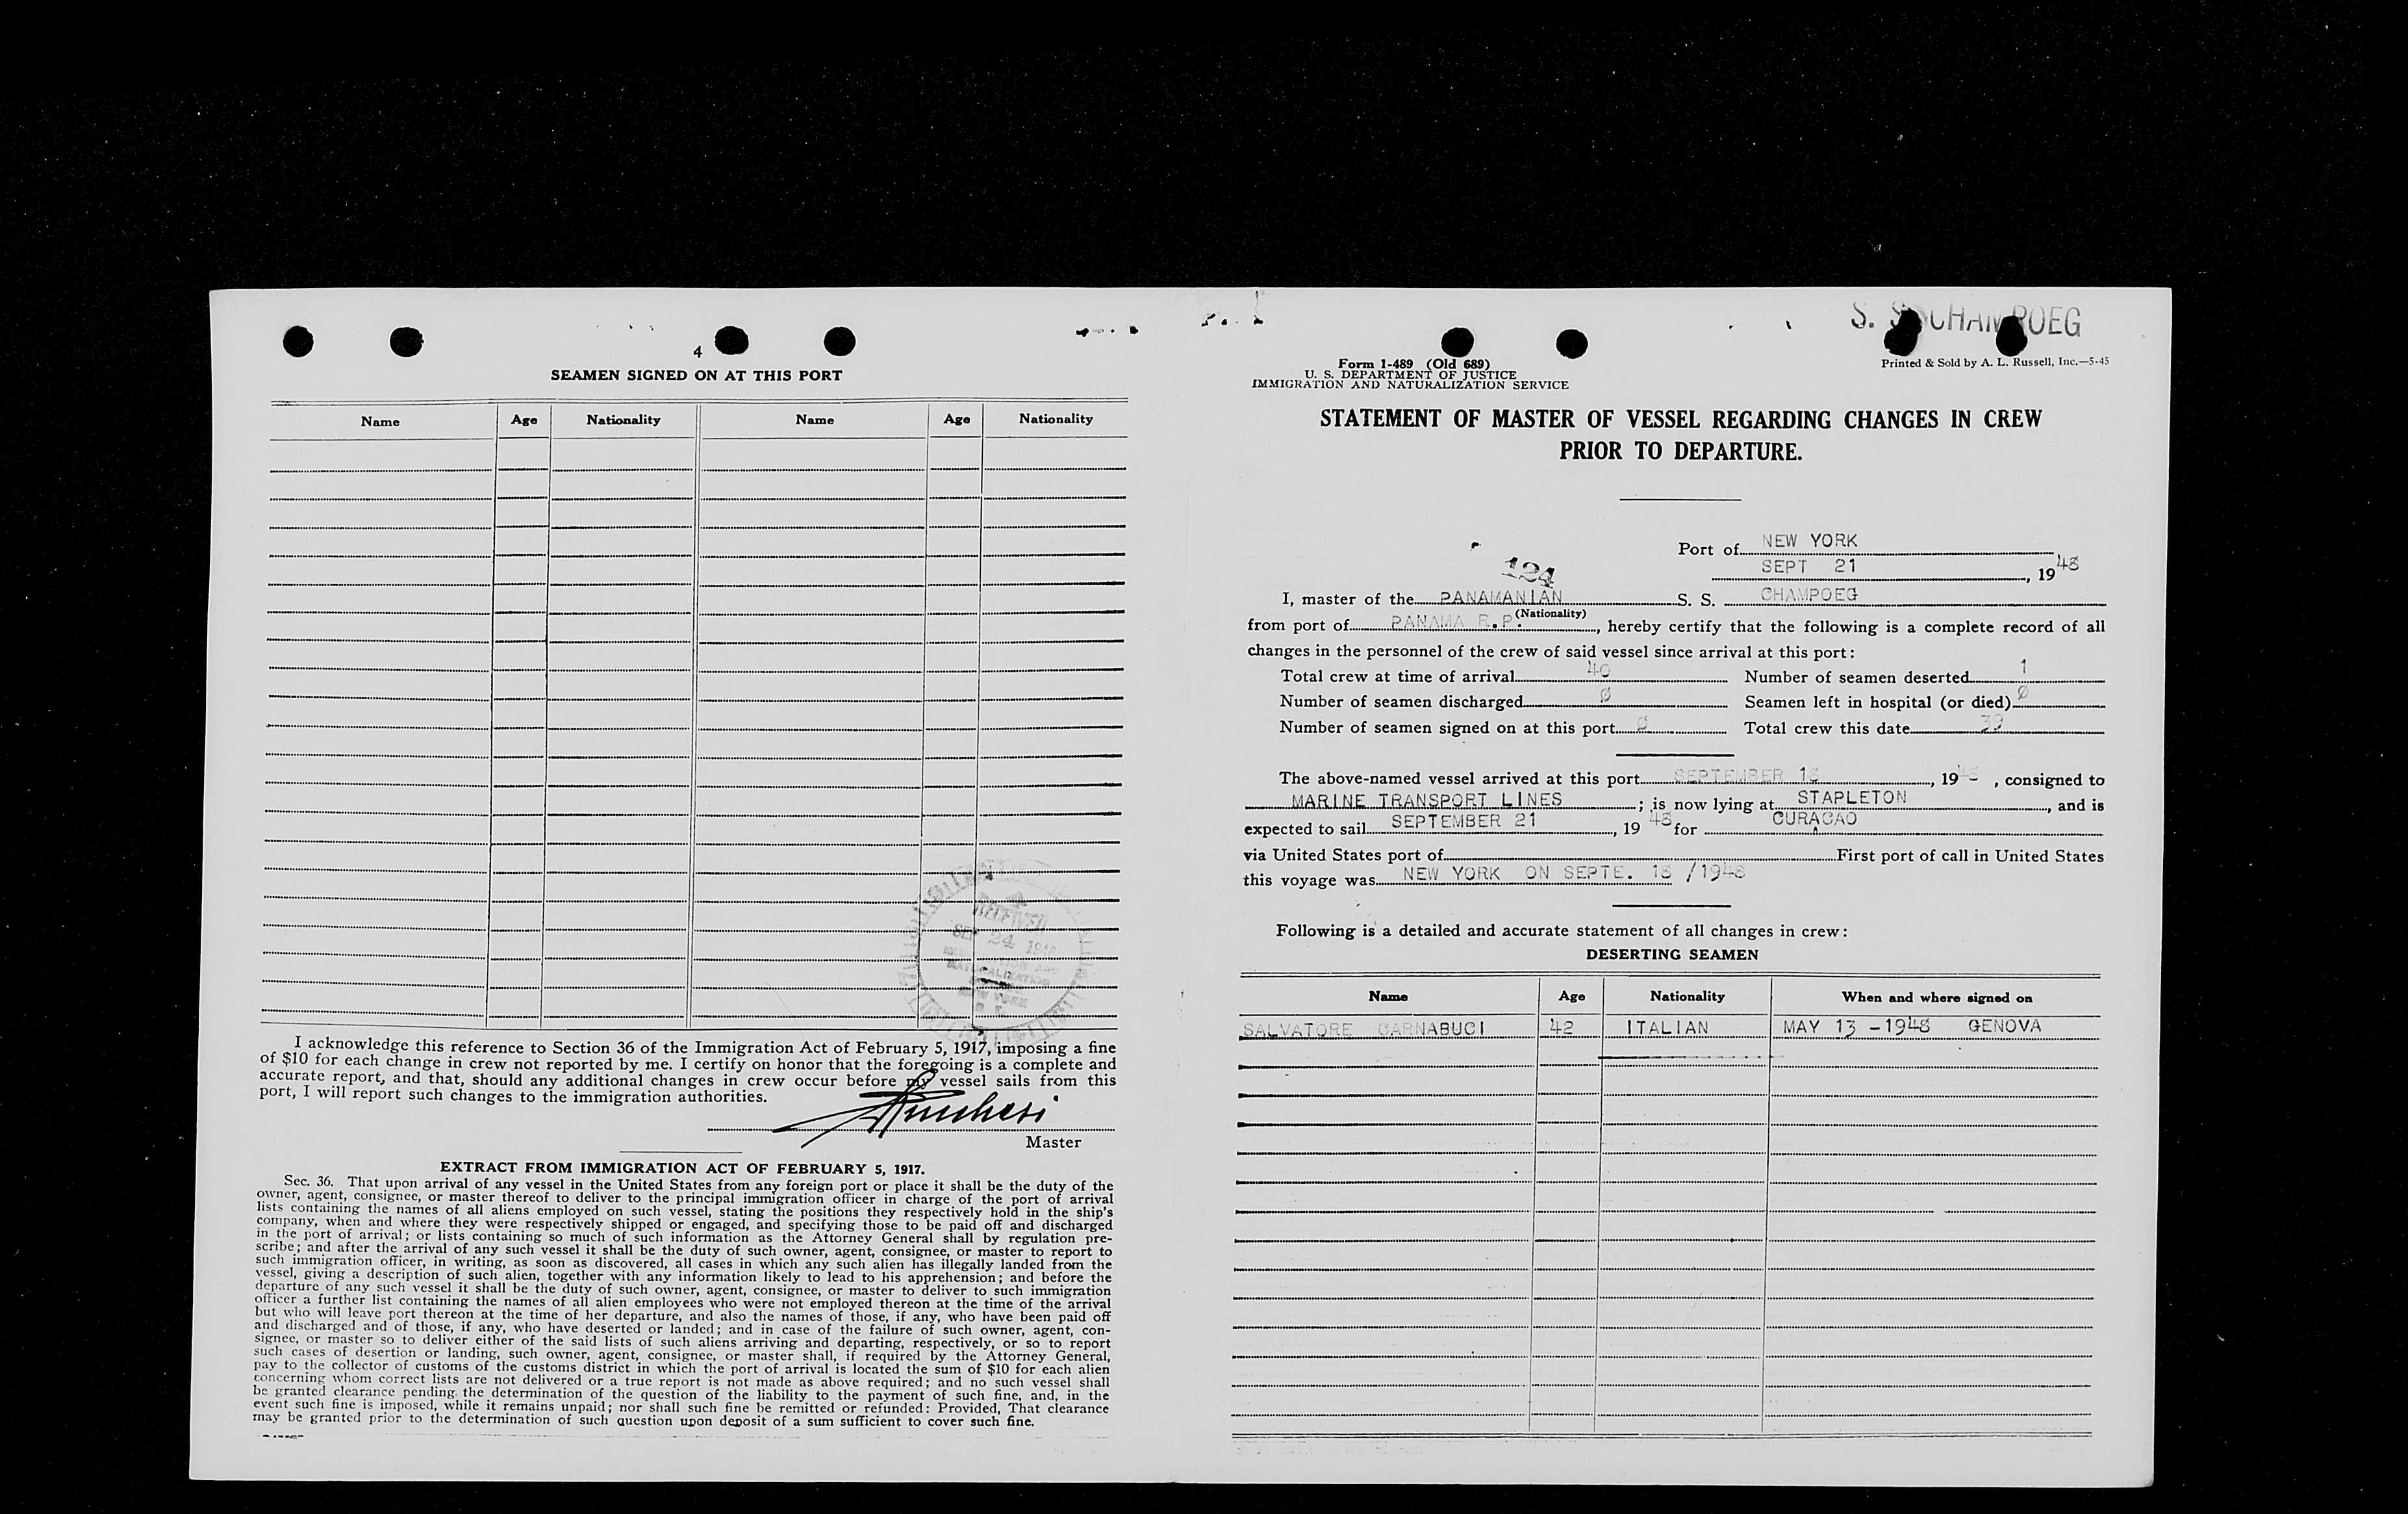 4
SEAMEN SIGNED ON AT THIS PORT
Name Age Nationality Name Age Nationality
RECEIVED
SEP 24 1948
I acknowledge this reference to Section 36 of the Immigration Act of February 5, 1917, imposing a fine
of $10 for each change in crew not reported by me. I certify on honor that the foregoing is a complete and
accurate report, and that, should any additional changes in crew occur before my vessel sails from this
port, I will report such changes to the immigration authorities.
Master
EXTRACT FROM IMMIGRATION ACT OF FEBRUARY 5, 1917.
Sec. 36. That upon arrival of any vessel in the United States from any foreign port or place it shall be the duty of the
owner, agent, consignee, or master thereof to deliver to the principal immigration officer in charge of the port of arrival
lists containing the names of all aliens employed on such vessel, stating the positions they respectively hold in the ship's
company, when and where they were respectively shipped or engaged, and specifying those to be paid off and discharged
in the port of arrival; or lists containing so much of such information as the Attorney General shall by regulation pre-
scribe; and after the arrival of any such vessel it shall be the duty of such owner, agent, consignee, or master to report to
such immigration officer, in writing, as soon as discovered, all cases in which any such alien has illegally landed from the
vessel, giving a description of such alien, together with any information likely to lead to his apprehension; and before the
departure of any such vessel it shall be the duty of such owner, agent, consignee, or master to deliver to such immigration
officer a further list containing the names of all alien employees who were not employed thereon at the time of the arrival
but who will leave port thereon at the time of her departure, and also the names of those, if any, who have been paid off
and discharged and of those, if any, who have deserted or landed; and in case of the failure of such owner, agent, con-
signee, or master so to deliver either of the said lists of such aliens arriving and departing, respectively, or so to report
such cases of desertion or landing, such owner, agent, consignee, or master shall, if required by the Attorney General,
pay to the collector of customs of the customs district in which the port of arrival is located the sum of $10 for each alien
concerning whom correct lists are not delivered or a true report is not made as above required; and no such vessel shall
be granted clearance pending the determination of the question of the liability to the payment of such fine, and, in the
event such fine is imposed, while it remains unpaid; nor shall such fine be remitted or refunded: Provided, That clearance
may be granted prior to the determination of such question upon deposit of a sum sufficient to cover such fine.
S. S. CHAMPOEG
Form 1-489 (Old 689)
U. S. DEPARTMENT OF JUSTICE
IMMIGRATION AND NATURALIZATION SERVICE
Printed & Sold by A. L. Russell, Inc.—5-45
STATEMENT OF MASTER OF VESSEL REGARDING CHANGES IN CREW
PRIOR TO DEPARTURE.
Port of NEW YORK
SEPT 21, 1948
124
I, master of the PANAMANIAN S. S. CHAMPOEG
(Nationality)
from port of PANAMA R.P., hereby certify that the following is a complete record of all
changes in the personnel of the crew of said vessel since arrival at this port:
Total crew at time of arrival 40 Number of seamen deserted 1
Number of seamen discharged 0 Seamen left in hospital (or died) 0
Number of seamen signed on at this port 0 Total crew this date 39
The above-named vessel arrived at this port SEPTEMBER 18, 1948, consigned to
MARINE TRANSPORT LINES; is now lying at STAPLETON, and is
expected to sail SEPTEMBER 21, 1948 for CURACAO
via United States port of First port of call in United States
this voyage was NEW YORK ON SEPTE. 18 /1948
Following is a detailed and accurate statement of all changes in crew:
DESERTING SEAMEN
Name Age Nationality When and where signed on
SALVATORE CARNABUCI 42 ITALIAN MAY 13 -1948 GENOVA